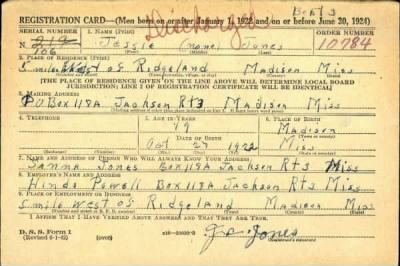 Box 3
REGISTRATION CARD—(Men born on or after January 1, 1922 and on or before June 30, 1924)
Discharged
SERIAL NUMBER 1. NAME (Print) ORDER NUMBER
212 Jessie (none) Jones 10784
106
2. PLACE OF RESIDENCE (Print)
5 miles West of Ridgeland Madison Miss
[THE PLACE OF RESIDENCE GIVEN ON THE LINE ABOVE WILL DETERMINE LOCAL BOARD
JURISDICTION; LINE 2 OF REGISTRATION CERTIFICATE WILL BE IDENTICAL]
3. MAILING ADDRESS
P O Box 118A Jackson Rt 3 Madison Miss
4. TELEPHONE 5. AGE IN YEARS 6. PLACE OF BIRTH
19 Madison
DATE OF BIRTH
Oct 27 1922 Miss
7. NAME AND ADDRESS OF PERSON WHO WILL ALWAYS KNOW YOUR ADDRESS
Jones Box 118A Jackson Rt 3 Miss
8. EMPLOYER'S NAME AND ADDRESS
Hinds Powell Box 118A Jackson Rt 3 Miss
9. PLACE OF EMPLOYMENT OR BUSINESS
5 mile West of Ridgeland Madison Miss
I AFFIRM THAT I HAVE VERIFIED ABOVE ANSWERS AND THAT THEY ARE TRUE.
D. S. S. Form 1
(Revised 6-1-42) (over)
Jones